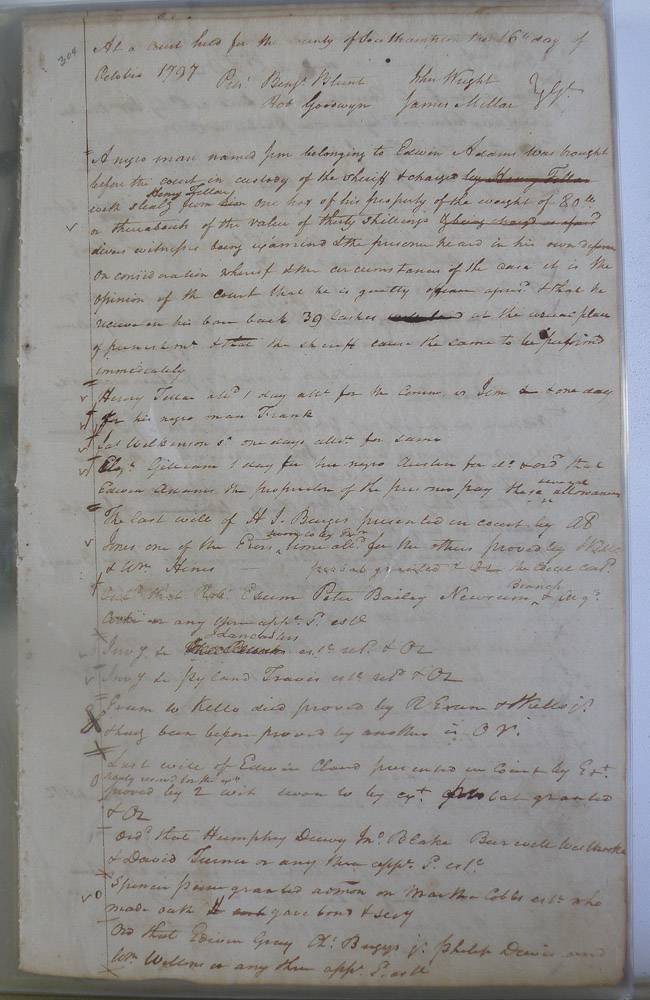 304
At a court held for the county of Southampton the 16th day of
October 1797 Pres. Benja. Blunt John Wright
Rob Goodwyn James Millar Gt.
A negro man named Jim belonging to Edwin Adams was brought
before the court in custody of the sheriff & charged by Henry Tellar
Henry Tellar
with stealg from him one hog of his property of the weight of 80 lb
or thereabouts of the value of thirty shillings
divers witnesses being examined & the prisoner heard in his own defence
on consideration whereof & the circumstances of the case it is the
opinion of the court that he is guilty & that he
receive on his bare back 39 lashes at the usual place
of punishmt. & that the sheriff cause the same to be performed
immediately
Henry Tellar 1 day for the Comm. vs Jim & one day
for his negro man Frank
Jas Wilkinson one days for same
Gilliam 1 day for her negro Austin for do. & ord. that
Edwin Adams the proprietor of the prisoner pay these several allowances
The last will of H J. Burges presented in court by AB
Jones one of the Exors for the others proved by
& Wm Hines probat granted & OR
Branch
Ord. that Rob. Exum Peter Bailey Newsum & Aug.
Cocke or any three appr. estt
Lancasters
Invy. & este. retd. & OR
Invy. & Ryland Travis este. retd & OR
Exum to Kello died proved by R Exum & Kello jr.
& havg been before proved by another is OR.
Last will of Edwin Cloud presented in Court by Ext.
proved by 2 wit sworn to by ext. probat granted
& OR
Ord. that Humphry Drewry Jno. Blake Burwell
& David Turner or any three appr. este.
Spencer granted admon on Martha Cobbs este. who
made oath gave bond & secy
Ord that Edwin Gray Burges jr. Philip Davis and
Wm. or any three appr. estt